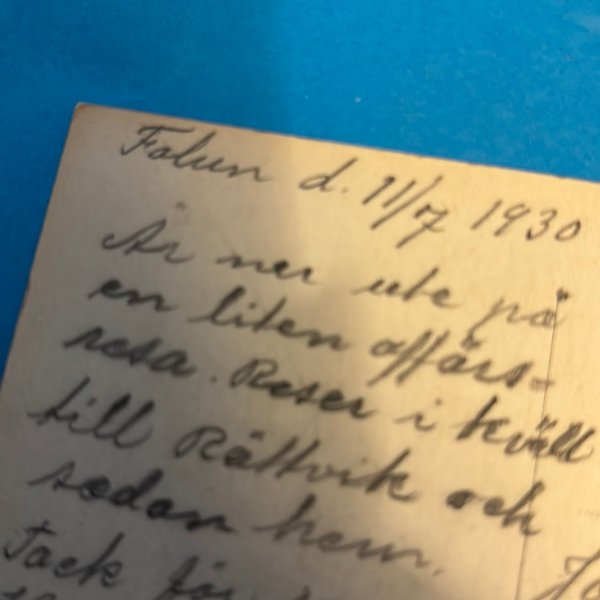 Falun d. 11/7 1930
Är ner ute på
en liten affärs-
resa. Reser i kväll
till Rättvik och
sedan hem.
Tack för